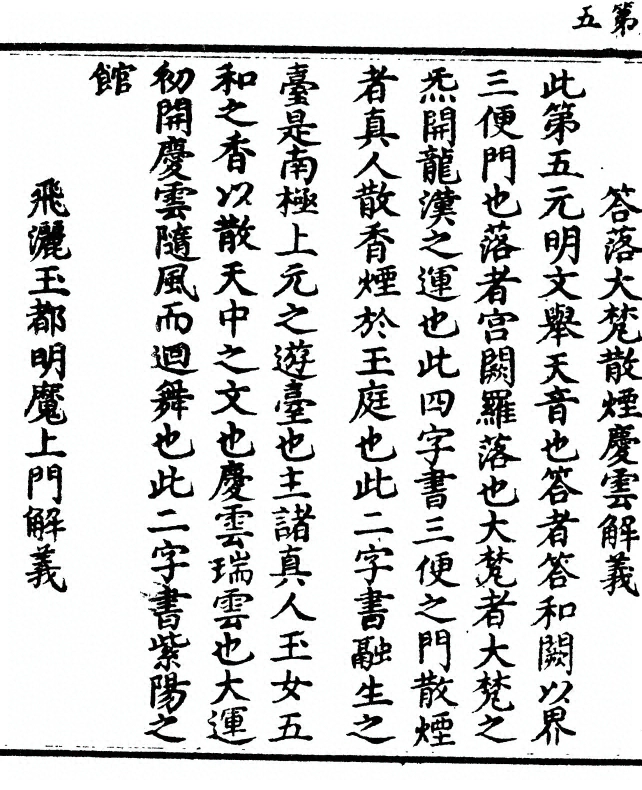 第五
答落大梵散煙慶雲解義
此第五元明文舉天音也答者答和闕以界
三便門也落者宮闕羅落也大梵者大梵之
炁開龍漢之運也此四字書三便之門散煙
者真人散香煙於玉庭也此二字書融生之
臺是南極上元之遊臺也主諸真人玉女五
和之香以散天中之文也慶雲瑞雲也大運
初開慶雲隨風而迴舞也此二字書紫陽之
館
飛灑玉都明魔上門解義